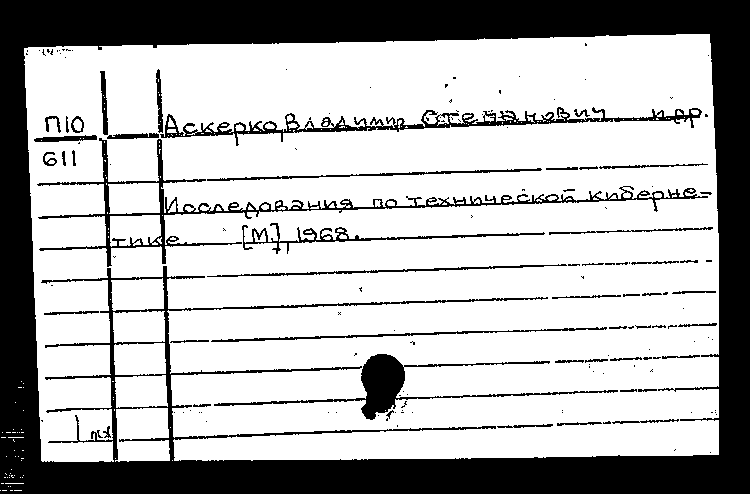 П10 Аскерко, Владимир Степанович и др.
611
Исследования по технической киберне=
тике. [М.], 1968.
1